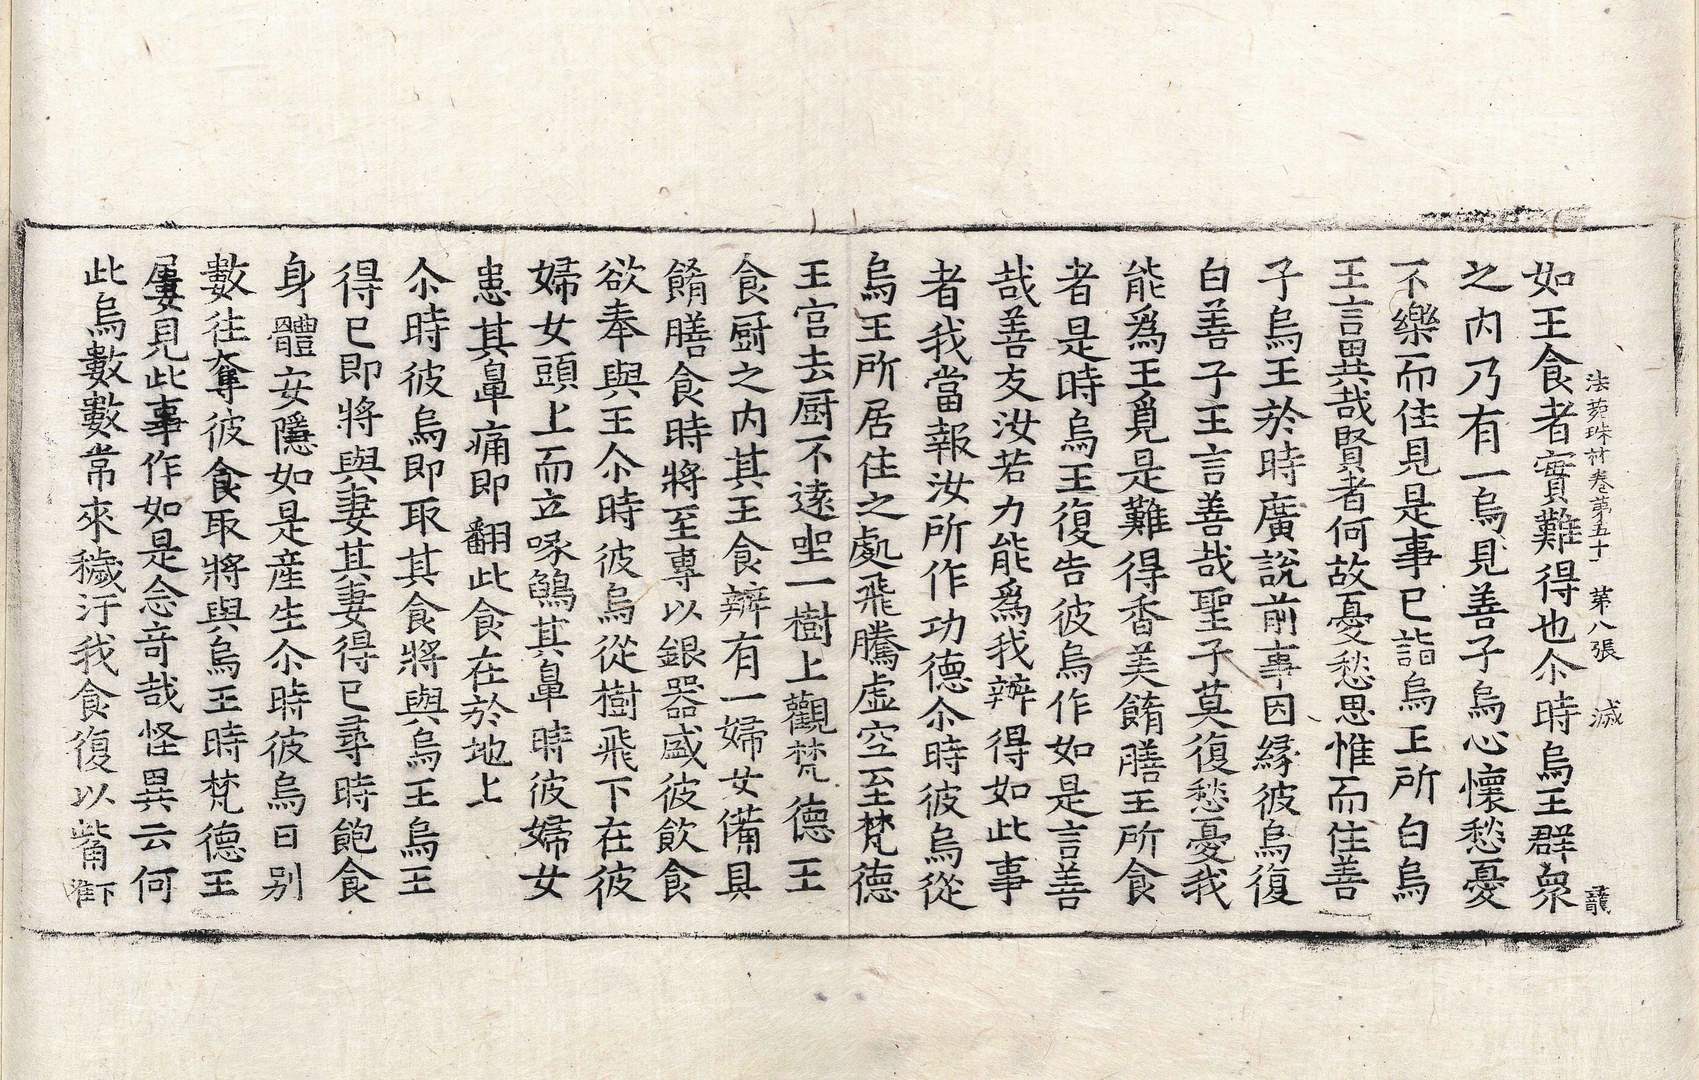 法苑珠林卷第五十一 第八張 滅
如王食者實難得也尒時烏王群衆
之内乃有一烏見善子烏心懷愁憂
不樂而住見是事已詣烏王所白烏
王言異哉賢者何故憂愁思惟而住善
子烏王於時廣說前事因緣彼烏復
白善子王言善哉聖子莫復愁憂我
能爲王覓是難得香美餚膳王所食
者是時烏王復告彼烏作如是言善
哉善友汝若力能爲我辦得如此事
者我當報汝所作功德尒時彼烏從
烏王所居住之處飛騰虛空至梵德
王宮去厨不遠坐一樹上觀梵德王
食厨之内其王食辦有一婦女備具
餚膳食時將至專以銀器盛彼飲食
欲奉與王尒時彼烏從樹飛下在彼
婦女頭上而立啄鵮其鼻時彼婦女
患其鼻痛即翻此食在於地上
尒時彼烏即取其食將與烏王烏王
得已即將與妻其妻得已尋時飽食
身體安隱如是産生尒時彼烏日别
數往奪彼食取將與烏王時梵德王
屢見此事作如是念竒哉怪異云何
此烏數數常來穢汙我食復以觜